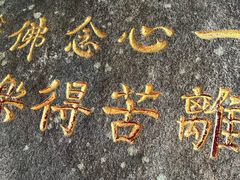 一心念佛
離苦得樂